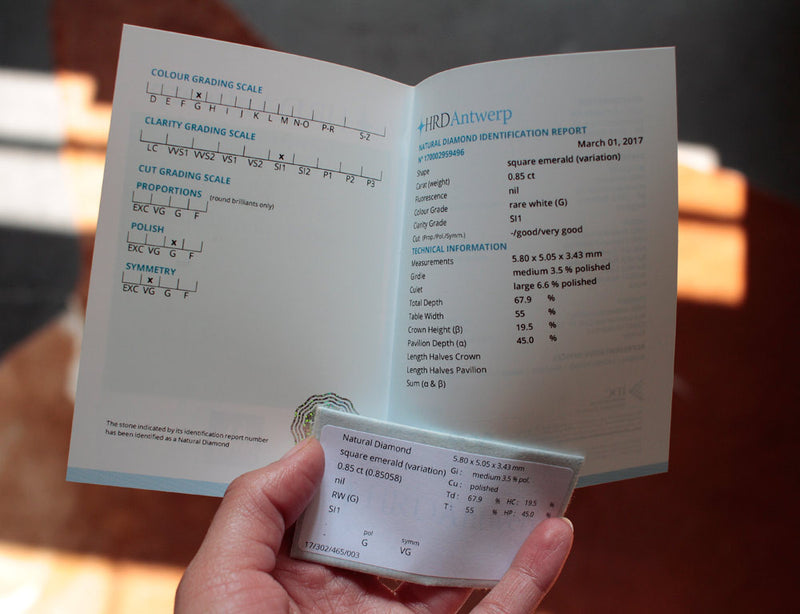 COLOUR GRADING SCALE
x
D E F G H I J K L M N-O P-R S-Z
CLARITY GRADING SCALE
x
LC VVS1 VVS2 VS1 VS2 SI1 SI2 P1 P2 P3
CUT GRADING SCALE
PROPORTIONS
(round brilliants only)
EXC VG G F
POLISH
x
EXC VG G F
SYMMETRY
x
EXC VG G F
The stone indicated by its identification report number
has been identified as a Natural Diamond
HRDAntwerp
NATURAL DIAMOND IDENTIFICATION REPORT
N° 170002959496 March 01, 2017
Shape square emerald (variation)
Carat (weight) 0.85 ct
Fluorescence nil
Colour Grade rare white (G)
Clarity Grade SI1
Cut (Prop./Pol./Symm.) -/good/very good
TECHNICAL INFORMATION
Measurements 5.80 x 5.05 x 3.43 mm
Girdle medium 3.5 % polished
Culet large 6.6 % polished
Total Depth 67.9 %
Table Width 55 %
Crown Height (β) 19.5 %
Pavilion Depth (α) 45.0 %
Length Halves Crown
Length Halves Pavilion
Sum (α & β)
Natural Diamond 5.80 x 5.05 x 3.43 mm
square emerald (variation) Gi : medium 3.5 % pol.
0.85 ct (0.85058) Cu : polished
nil Td : 67.9 % HC : 19.5 %
RW (G) T : 55 % HP : 45.0 %
SI1
pol symm
- G VG
17/302/465/003